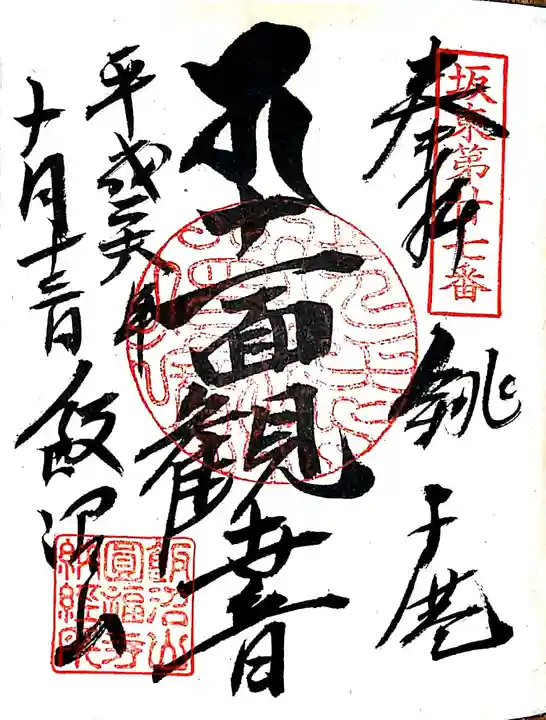 奉拝
坂東第廿七番
銚子港
十一面観世音
平成二六年
十月十三日
飯沼山
飯沼山
圓福寺
納経所